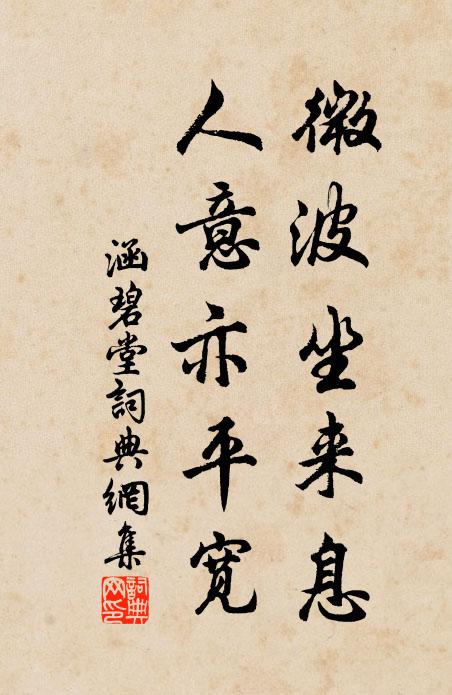 微波坐来息
人意亦平宽
涵碧堂詞典網集
詞典
网印